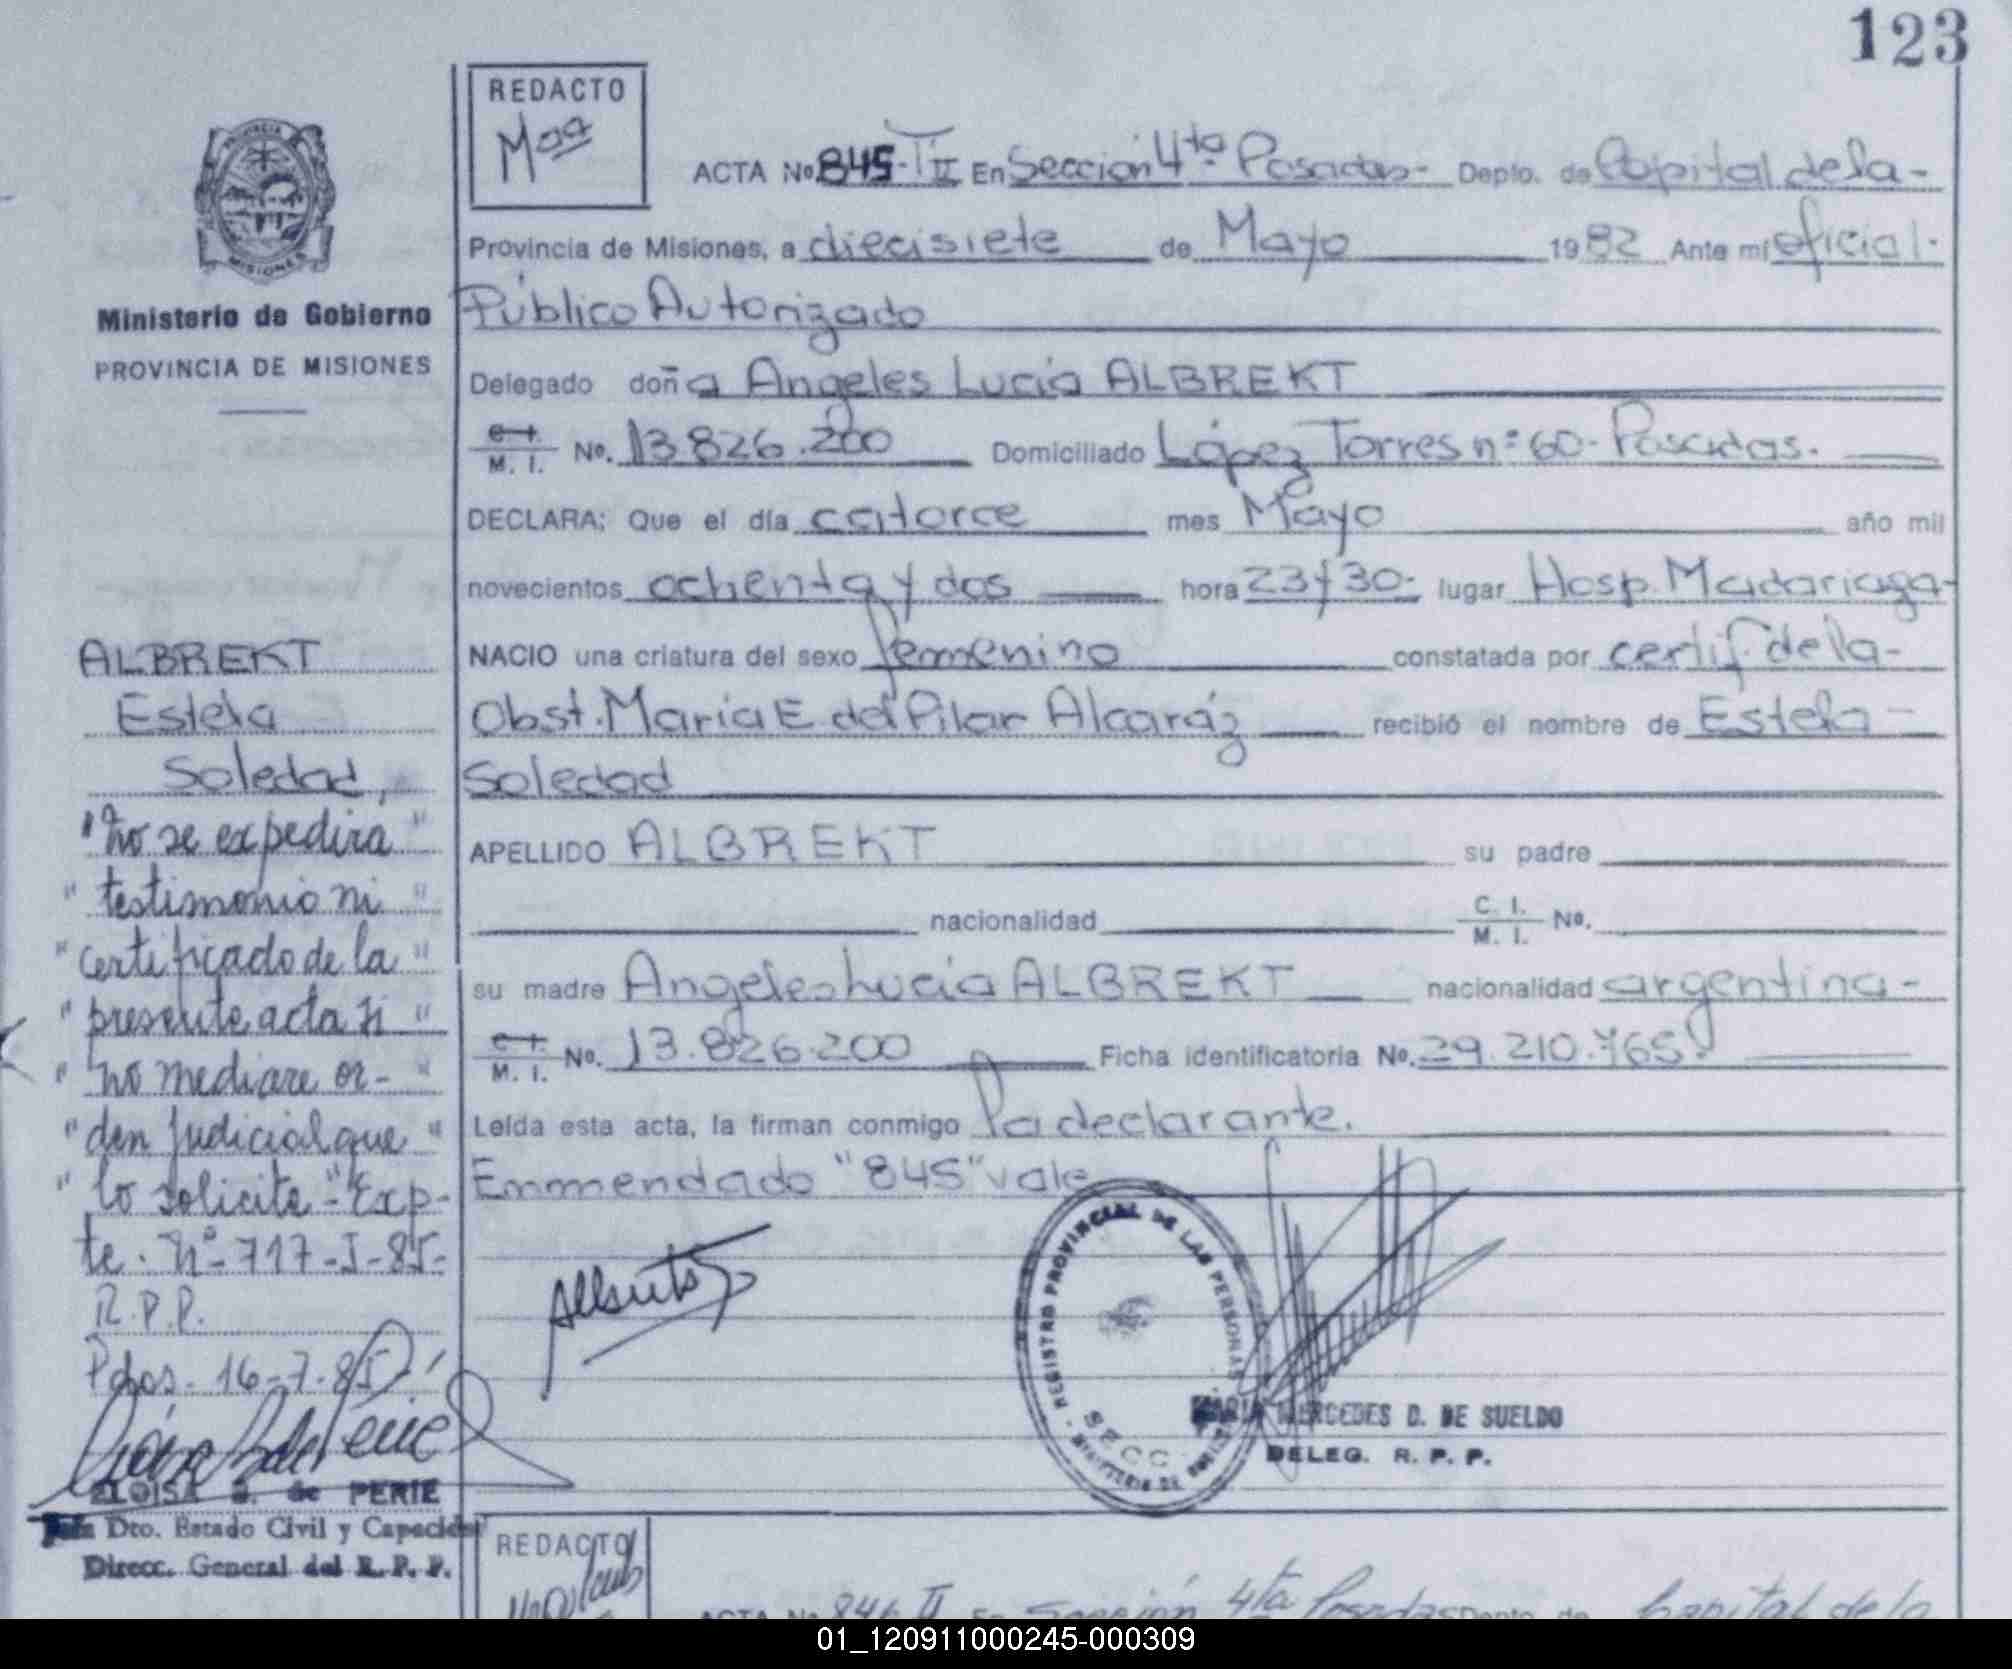 123
REDACTO
Maa
ACTA No. 845-T II En Sección 4ta Posadas- Depto. de Capital de la-
Provincia de Misiones, a diecisiete de Mayo 1982 Ante mí oficial-
Público Autorizado
Delegado doña Angeles Lucía ALBREKT
C. I. M. I. No. 13.826.200 Domiciliado López Torres nº 60- Posadas.
DECLARA: Que el día catorce mes Mayo año mil
novecientos ochenta y dos hora 23 y 30- lugar Hosp. Madariaga-
NACIO una criatura del sexo femenino constatada por certif. de la-
Obst. María E. del Pilar Alcaráz recibió el nombre de Estela-
Soledad
APELLIDO ALBREKT su padre
nacionalidad C. I. M. I. No.
su madre Angeles Lucía ALBREKT nacionalidad argentina-
C. I. M. I. No. 13.826.200 Ficha identificatoria No. 29.210.765.
Leída esta acta, la firman conmigo la declarante.
Enmendado "845" vale
REGISTRO PROVINCIAL DE LAS PERSONAS
SECC.
MARIA MERCEDES D. DE SUELDO
DELEG. R. P. P.
PROVINCIA
MISIONES
Ministerio de Gobierno
PROVINCIA DE MISIONES
ALBREKT
Estela
Soledad,
"No se expedira"
"testimonio ni"
"certificado de la"
"presente acta si"
"no mediare or-"
"den judicial que"
"lo solicite-" Exp-
te. Nº-717-J-85-
R.P.P.
Pdas. 16-7-85
ELOISA B. de PERIE
Jefa Dto. Estado Civil y Capacidad
Direcc. General del R. P. P.
REDACTO
ACTA No. 846 II En Sección 4ta Posadas Depto. de Capital de la
01_120911000245-000309